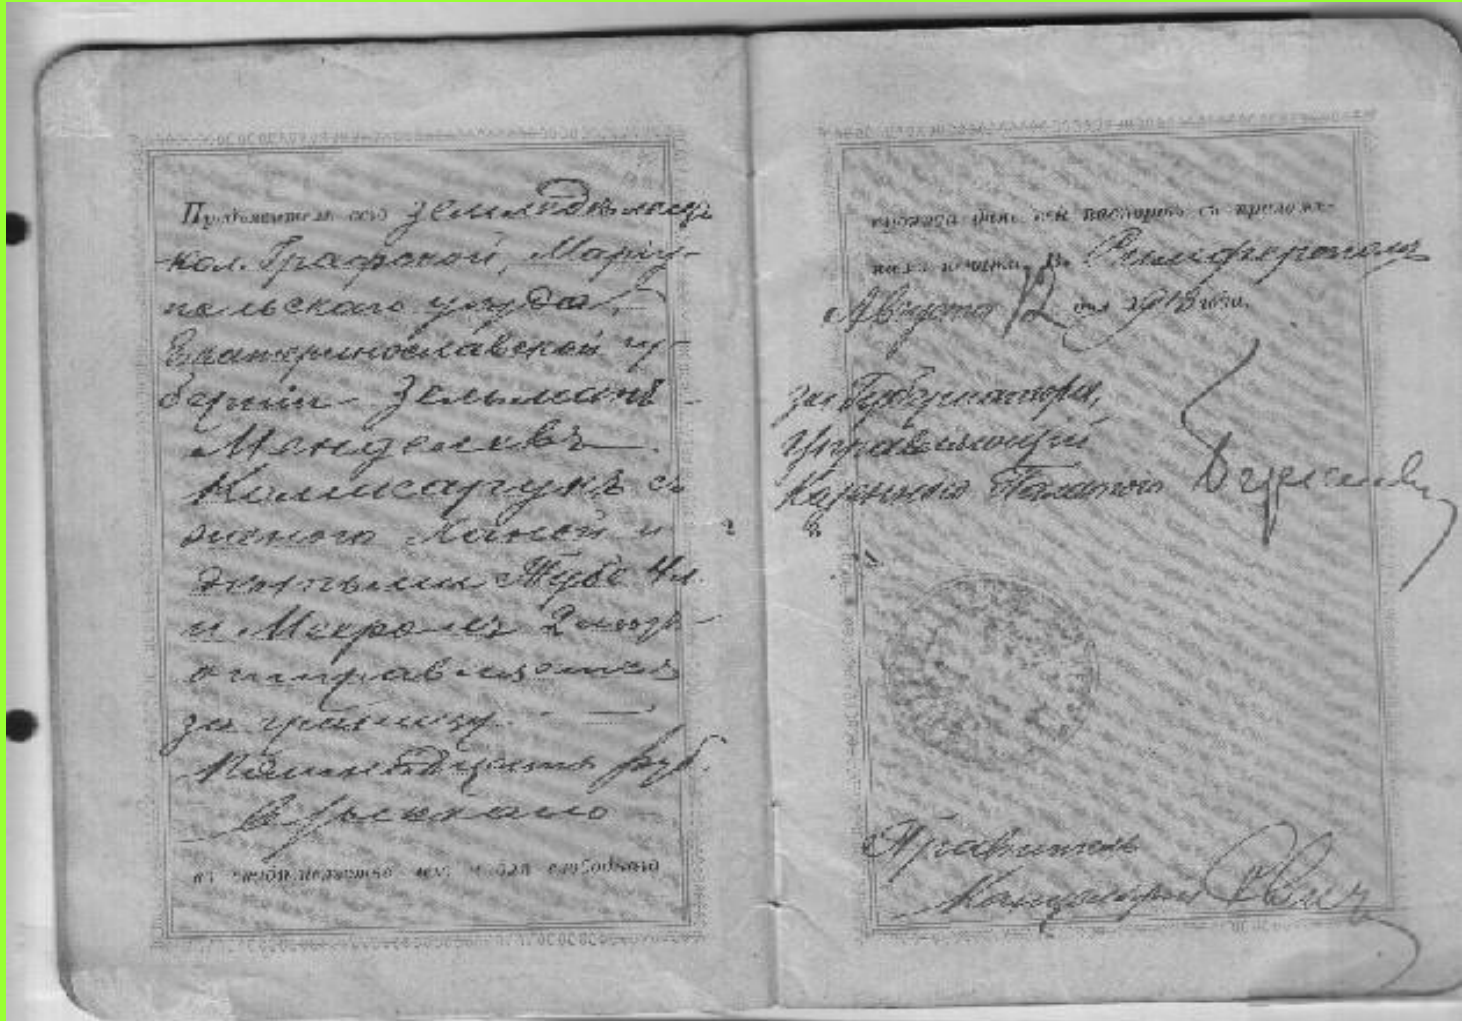 Предъявитель сего земледѣлецъ
кол. Графской, Маріу-
польскаго уѣзда,
Екатеринославской гу-
берніи Зельманъ
Менделевъ
Комисарукъ съ
женою Ханой и
дѣтьми 4 л.
и 2 л.
отправляется
за границу
Пятнадцать руб.
взыскано
въ свидѣтельство чего и для свободнаго
проѣзда данъ сей паспортъ съ приложе-
ніемъ печати. Въ Симферополь
Августа 12 дня 1913 года.
за Губернатора,
Управляющій
Казенною Палатою
Правитель
Канцеляріи